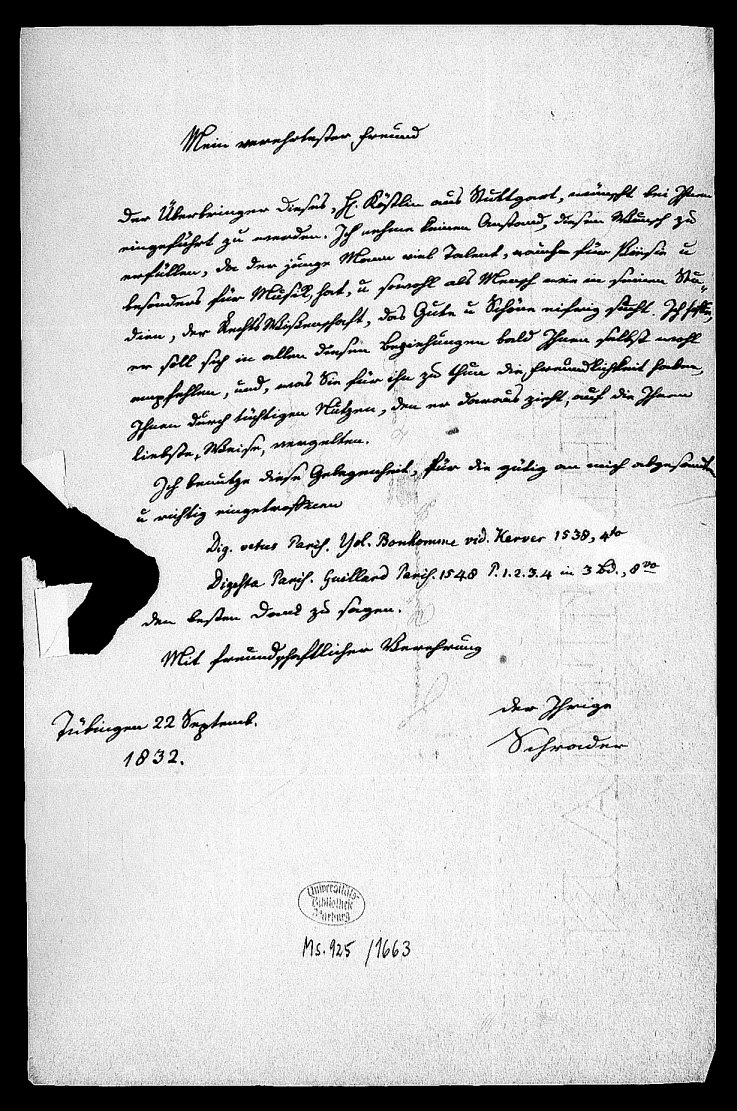 Mein verehrtester Freund
der Überbringer dieses, H. Köstlin aus Stuttgart, wünscht bei Ihnen
eingeführt zu werden. Ich nehme keinen Anstand, diesen Wunsch zu
erfüllen, da der junge Mann viel Talent, auch für Poësie u
besonders für Musik, hat, u sowohl als Mensch wie in seinen Stu-
dien, der RechtsWissenschaft, das Gute u Schöne eifrig sucht. Ich hoffe,
er soll sich in allen diesen Beziehungen bald Ihnen selbst wohl
empfehlen, und, was Sie für ihn zu thun die Freundlichkeit haben,
Ihnen durch tüchtigen Nutzen, den er daraus zieht, auf die Ihnen
liebste, Weise, vergelten.
Ich benutze diese Gelegenheit, für die gütig an mich abgesandten
u richtig eingetroffenen
Dig. vetus Paris. Yol. Bonhomme vid. Kerver 1538, 4to
Digesta Paris. Guillard Paris. 1548 P. 1. 2. 3. 4 in 3 Bd., 8vo
den besten Dank zu sagen.
Mit freundschaftlicher Verehrung
der Ihrige
Schrader
Tübingen 22 Septemb.
1832.
Universitäts-
Bibliothek
Marburg
Ms. 925 /1663